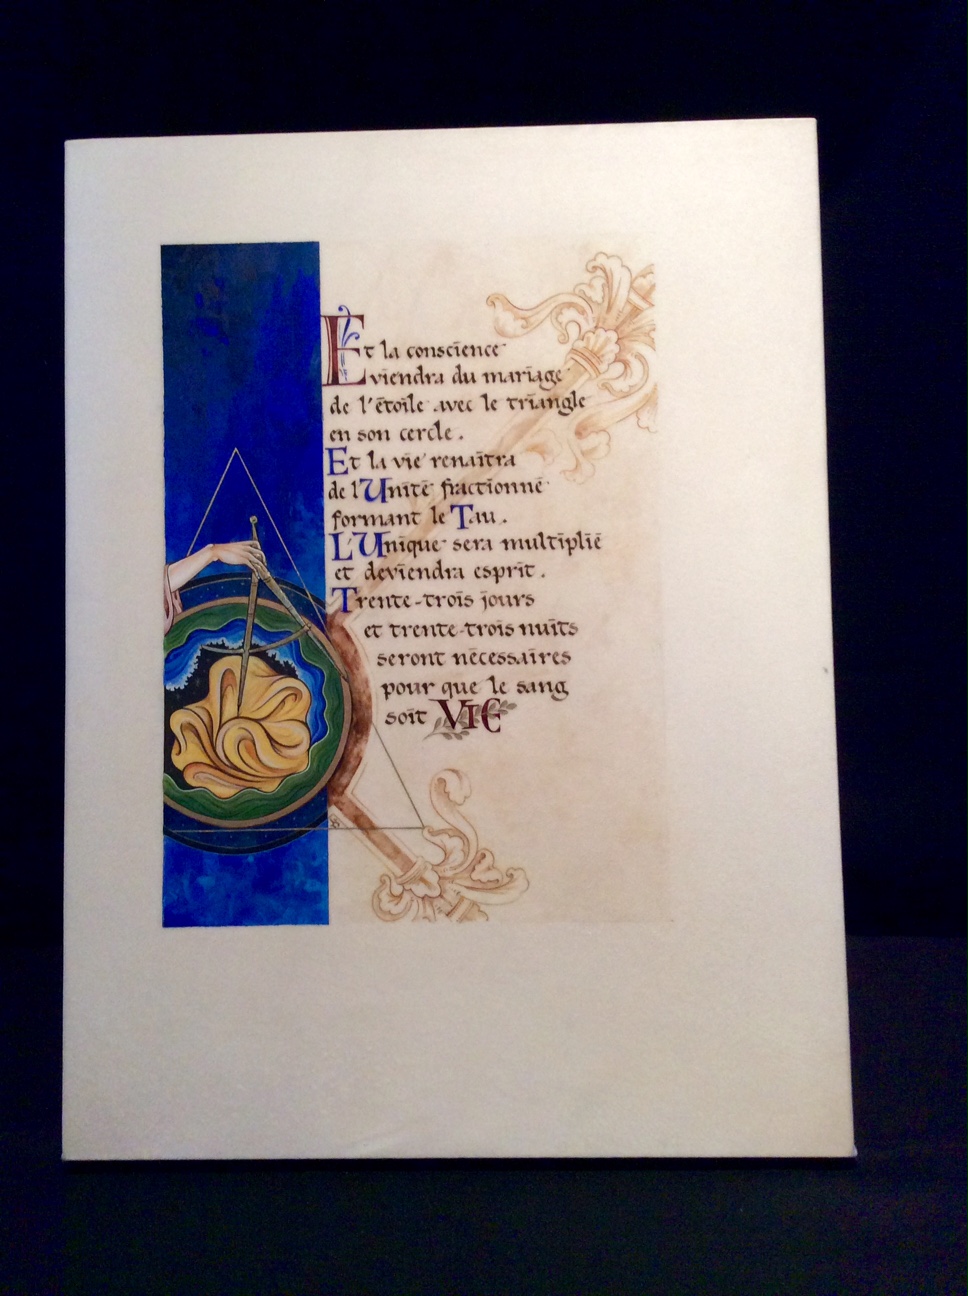 Et la conscience
viendra du mariage
de l'étoile avec le triangle
en son cercle.
Et la vie renaîtra
de l'Unité fractionné
formant le Tau.
L'Unique sera multiplié
et deviendra esprit.
Trente-trois jours
et trente-trois nuits
seront nécessaires
pour que le sang
soit VIE